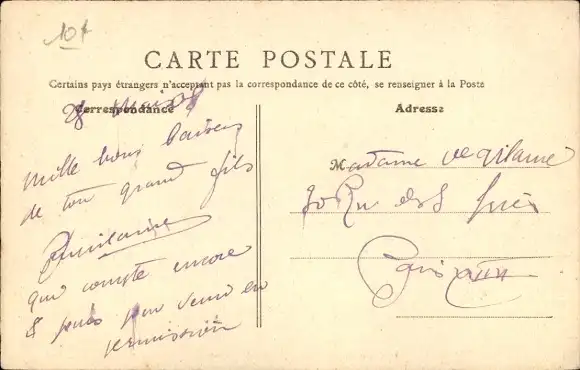 10f
CARTE POSTALE
Certains pays étrangers n'acceptant pas la correspondance de ce côté, se renseigner à la Poste
Correspondance
Adresse
28
Mille bons baisers
de ton grand fils
qui compte encore
8 jours pour venir en
permission
Madame
Rue
Paris